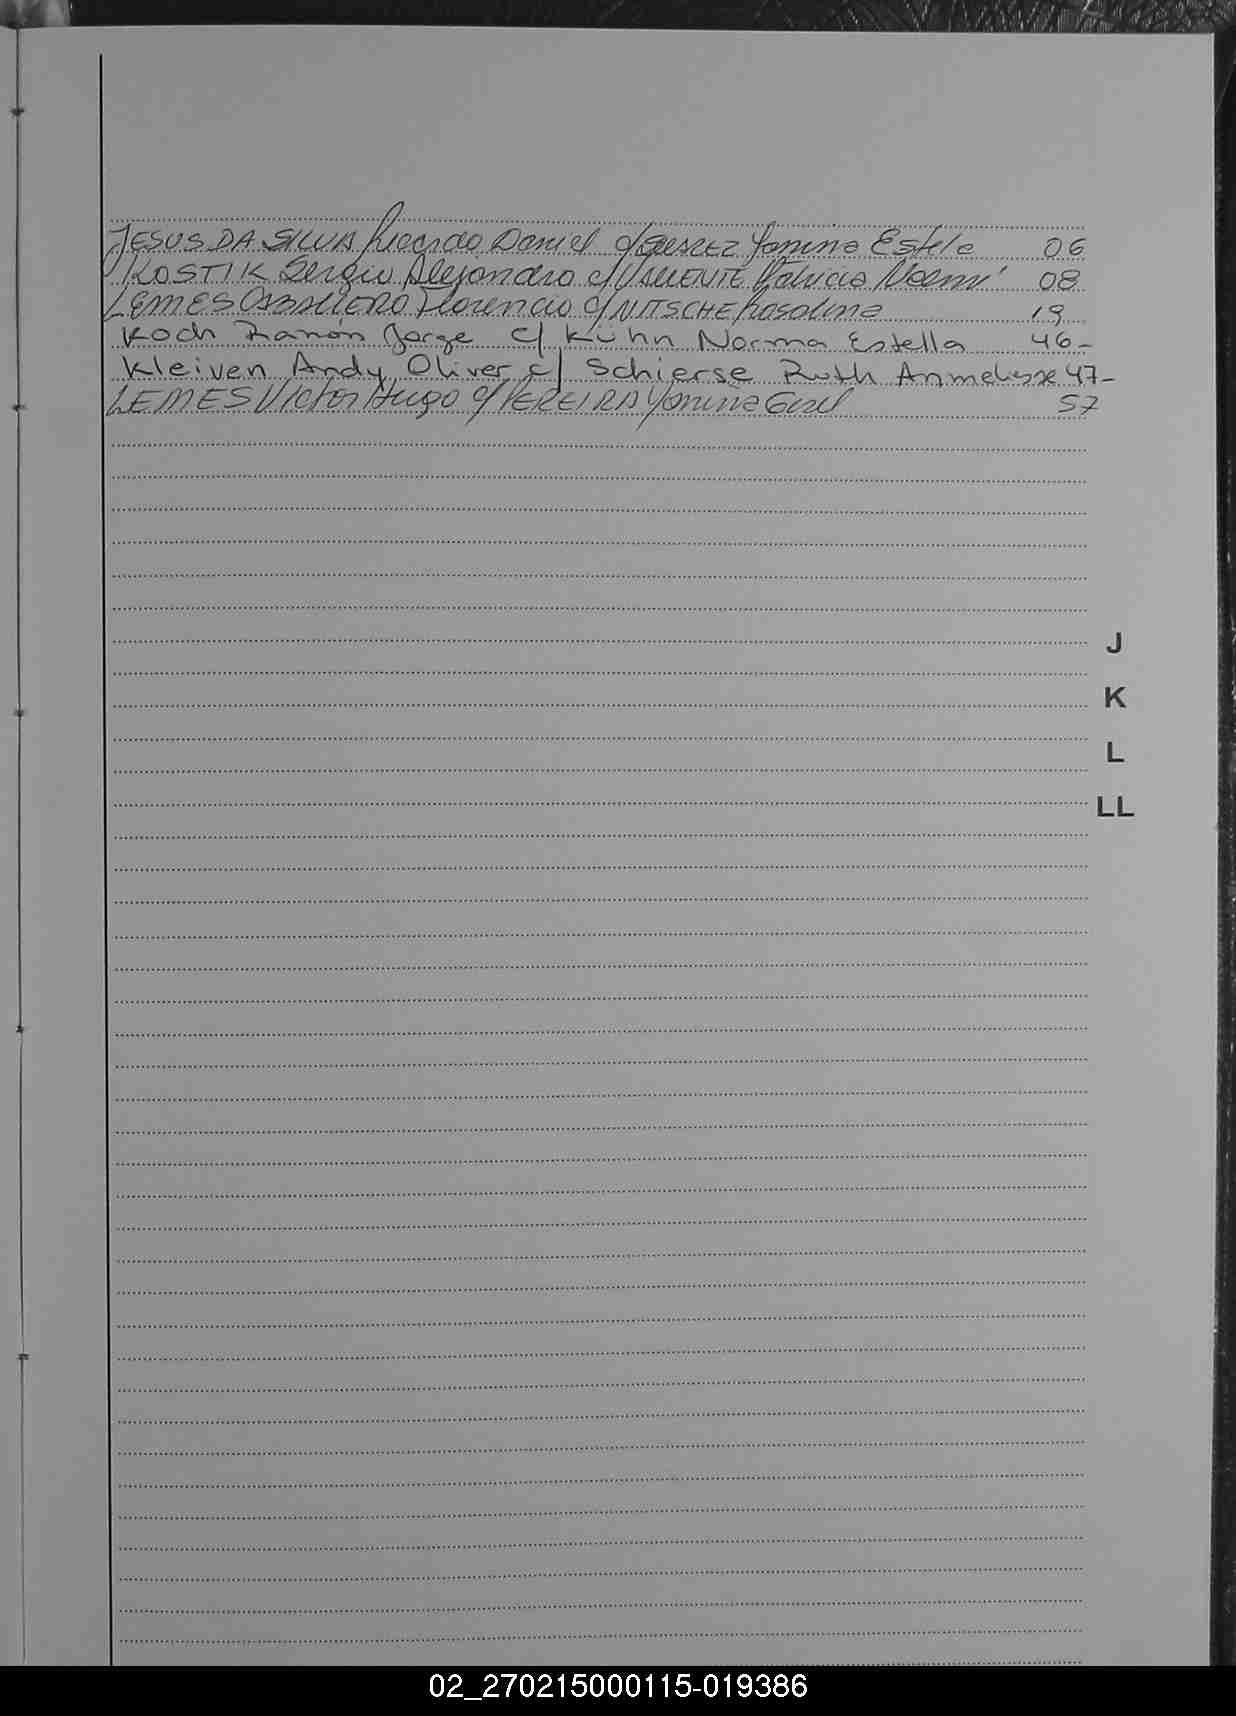 JESUS DA SILVA Ricardo Daniel c/ SUAREZ Yanina Estela 06
KOSTIK Sergio Alejandro c/ VALIENTE Patricia Noemí 08
LEMES CABALLERO Florencio c/ NITSCHE Rosalina 19
Koch Ramón Jorge c/ Kühn Norma Estella 46-
Kleiven Andy Oliver c/ Schierse Ruth 47-
LEMES Victor Hugo c/ PEREIRA Yanina Gisel 57
J
K
L
LL
02_270215000115-019386